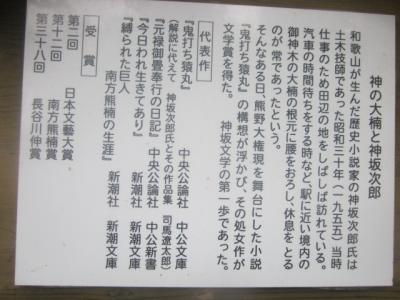 神の大楠と神坂次郎
和歌山が生んだ歴史小説家の神坂次郎氏は
土木技師であった昭和三十年（一九五五）当時
仕事のため田辺の地をしばしば訪れている。
汽車の時間待ちをする時など、駅に近い境内の
御神木の大楠の根元に腰をおろし、休息をとる
のが常であったという。
そんなある日、熊野大権現を舞台にした小説
『鬼打ち猿丸』の構想が浮かび、その処女作が
文学賞を得た。　神坂文学の第一歩であった。
代表作
『鬼打ち猿丸』　中央公論社　中公文庫
（解説に代えて　神坂次郎氏とその作品集　司馬遼太郎）
『元禄御畳奉行の日記』　中央公論社　中公新書
『今日われ生きてあり』　新潮社　新潮文庫
『縛られた巨人　南方熊楠の生涯』　新潮社　新潮文庫
受賞
第二回　日本文藝大賞
第十二回　南方熊楠賞
第三十八回　長谷川伸賞